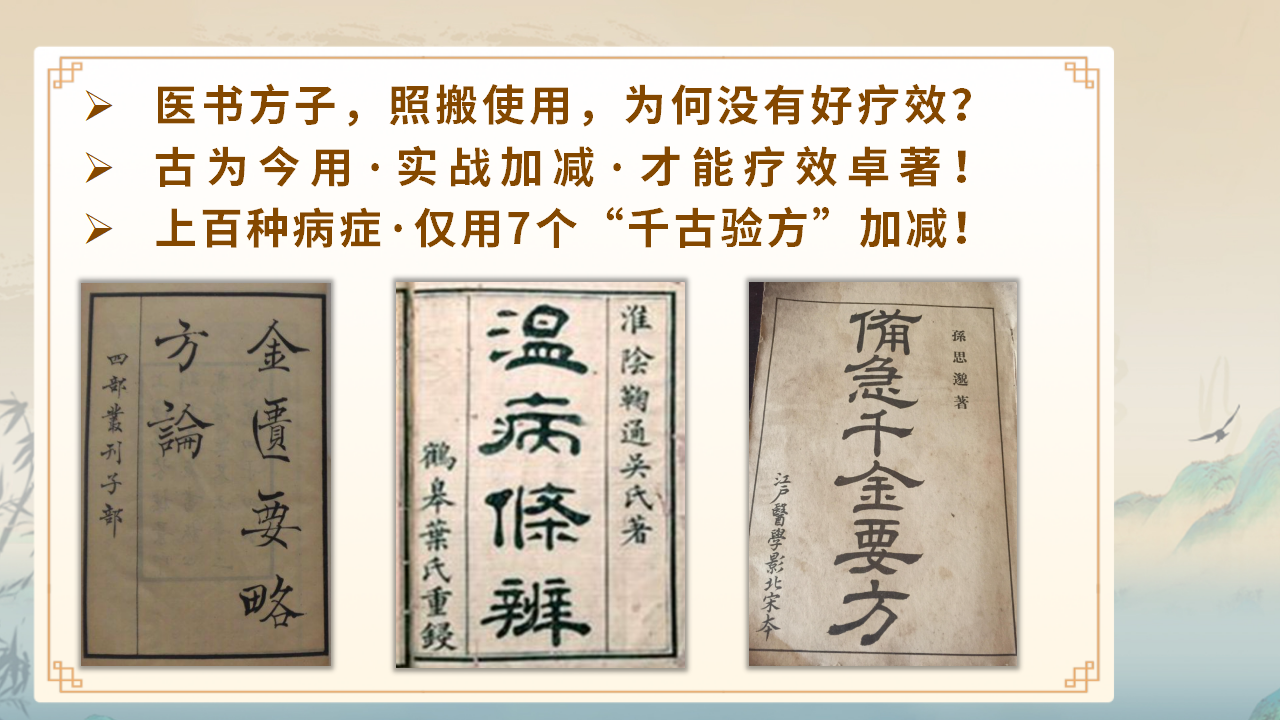 医书方子，照搬使用，为何没有好疗效？
古为今用·实战加减·才能疗效卓著！
上百种病症·仅用7个“千古验方”加减！
金匱要略
方論
四部叢刊子部
淮陰鞠通吳氏著
温病條辨
鶴皋葉氏重鋟
孫思邈著
備急千金要方
江戸醫學影北宋本